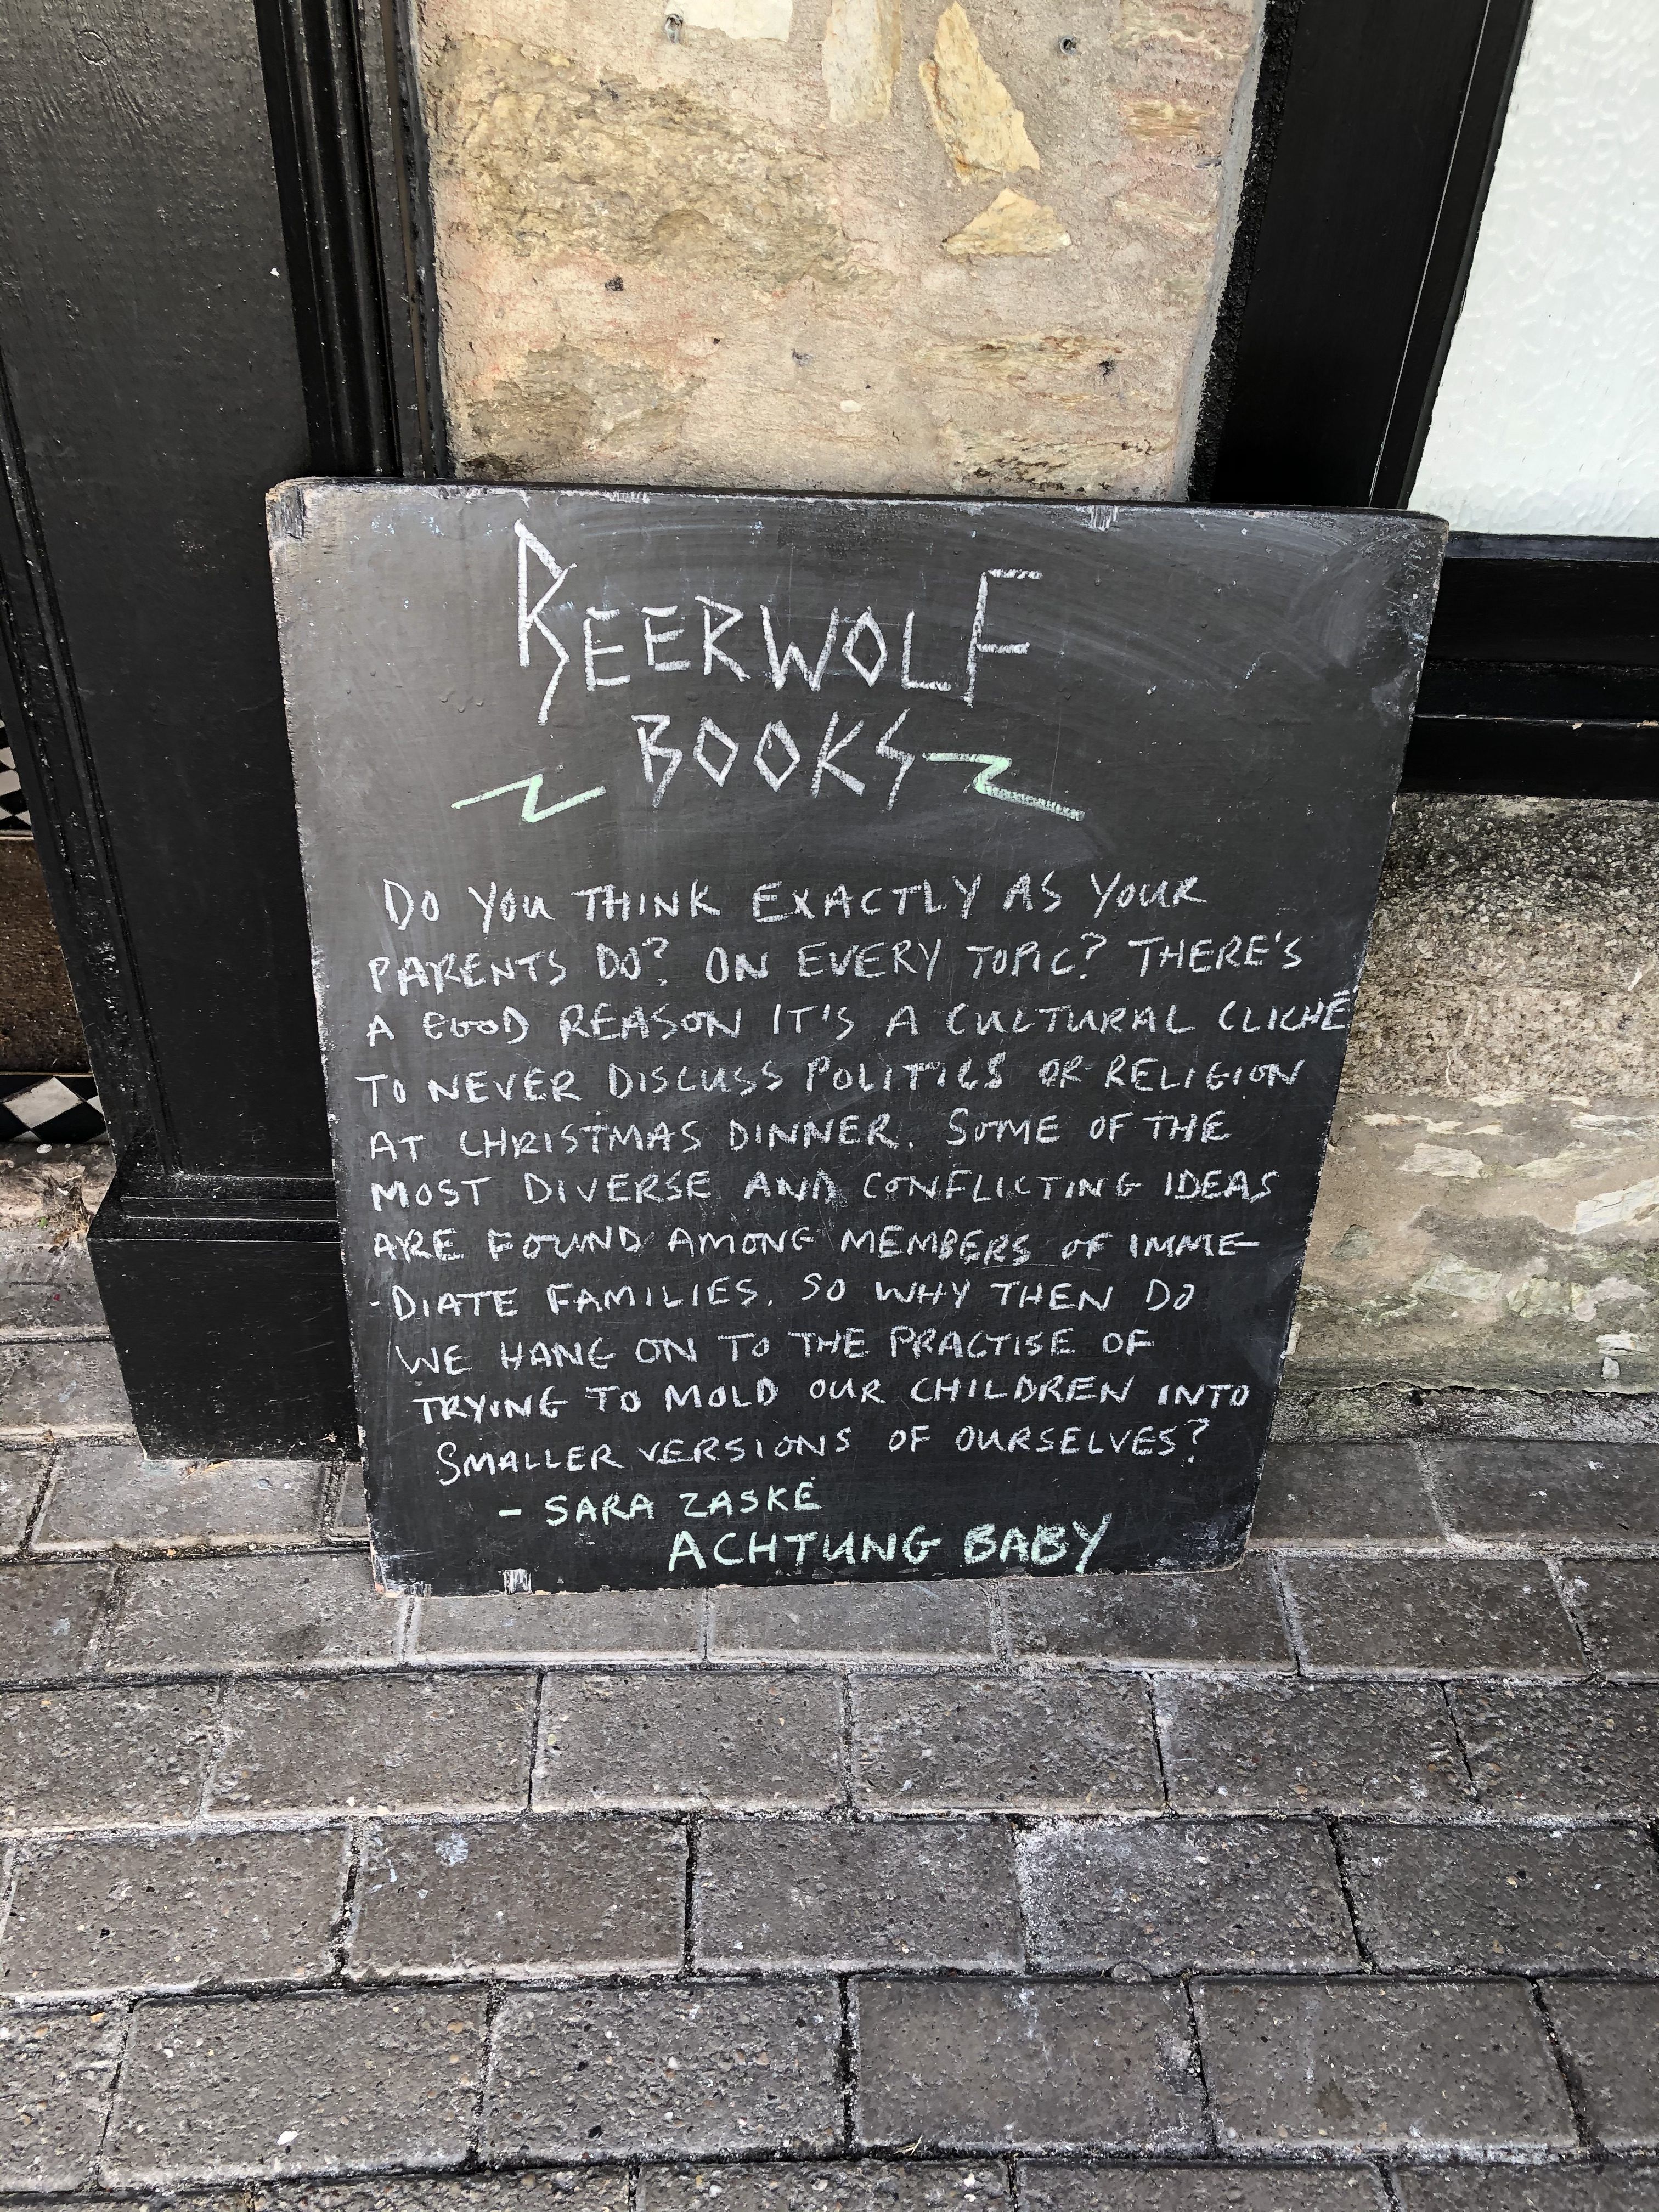 BEERWOLF
BOOKS
DO YOU THINK EXACTLY AS YOUR
PARENTS DO? ON EVERY TOPIC? THERE'S
A GOOD REASON IT'S A CULTURAL CLICHÉ
TO NEVER DISCUSS POLITICS OR RELIGION
AT CHRISTMAS DINNER. SOME OF THE
MOST DIVERSE AND CONFLICTING IDEAS
ARE FOUND AMONG MEMBERS OF IMME-
-DIATE FAMILIES. SO WHY THEN DO
WE HANG ON TO THE PRACTISE OF
TRYING TO MOLD OUR CHILDREN INTO
SMALLER VERSIONS OF OURSELVES?
- SARA ZASKE
ACHTUNG BABY